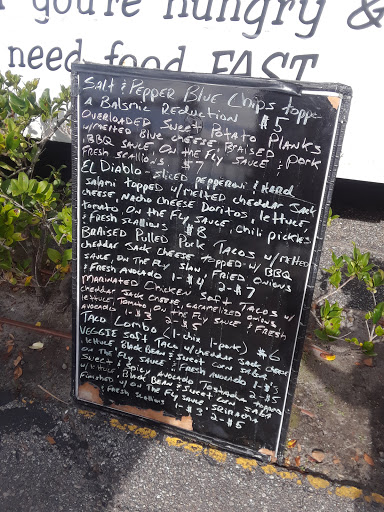 you're hungry &
need food FAST
Salt & Pepper Blue Chips topped
a Balsmic Reduction $5
Overloaded Sweet Potato Planks
w/melted Blue Cheese, Braised Pork
BBQ Sauce on the Fly Sauce &
Fresh Scallions. $7
El Diablo - sliced pepperoni & Hard
salami topped w/melted cheddar Jack
cheese, Nacho cheese Doritos, lettuce,
tomato on the Fly Sauce, chili pickles
& Fresh scallions $8
Braised Pulled Pork Tacos w/melted
cheddar Jack cheese topped w/BBQ
sauce, on the Fly Slaw, Fried Onions
& Fresh Avocado 1-$4 2-$7
Marinated Chicken Soft Tacos w/
cheddar Jack cheese, caramelized onions
lettuce, tomato on the Fly Sauce & Fresh
Avocado 1-$3 2-$5
Taco Combo (1-chix 1-pork) $6
Veggie Soft Taco w/cheddar Jack cheese
lettuce, Black Bean & sweet corn salsa
on the Fly Sauce & Fresh Avocado 1-$3
2-$5
Sweet & Spicy Avocado Tostada topped
w/lettuce, Black Bean & sweet corn salsa
Finished w/on the Fly Sauce Sriracha
& Fresh Scallions 1-$3 2-$5